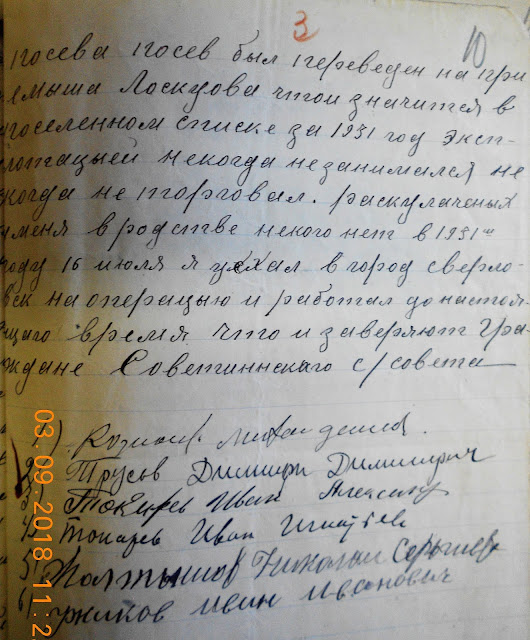 3
10
посева посев был переведен на при
емыша Лоскуова что и значится в
поселенном списке за 1931 год эксп-
лотацыей некогда незанимался не
когда не торговал. раскулаченых
уменя вродстве некого нет в 1931-м
году 16 июля я уехал в город сверло-
вск на операцыю и работал до настоя-
щаго время что и заверяют Гра-
ждане Советиннскаго с/совета
1)
2) Трусов Димитри Димитрич
3) Токарев Иван Алексан
4) Токарев Иван Игнатьев
5) Николаи
6) Иван Иванович
03.09.2018 11:2